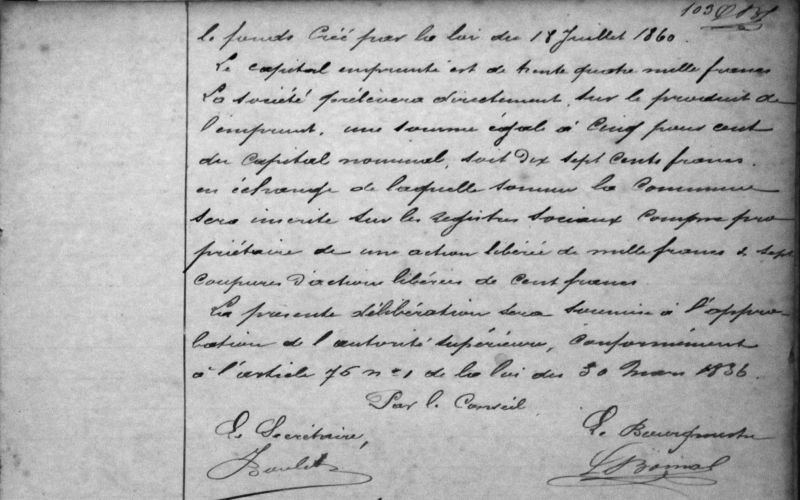 103
le fonds créé par la loi du 18 Juillet 1860.
Le capital emprunté est de trente quatre mille francs
La société prélèvera directement, sur le produit de
l'emprunt, une somme égale à cinq pour cent
du capital nominal, soit dix sept cents francs.
en échange de laquelle somme la Commune
sera inscrite sur les registres sociaux comme pro
priétaire de une action libérée de mille francs & sept
coupures d'action libérées de cent francs.
La présente délibération sera soumise à l'appro-
bation de l'autorité supérieure, conformément
à l'article 76 n° 1 de la loi du 30 Mars 1836.
Par le Conseil
Le Secrétaire, Le Bourgmestre